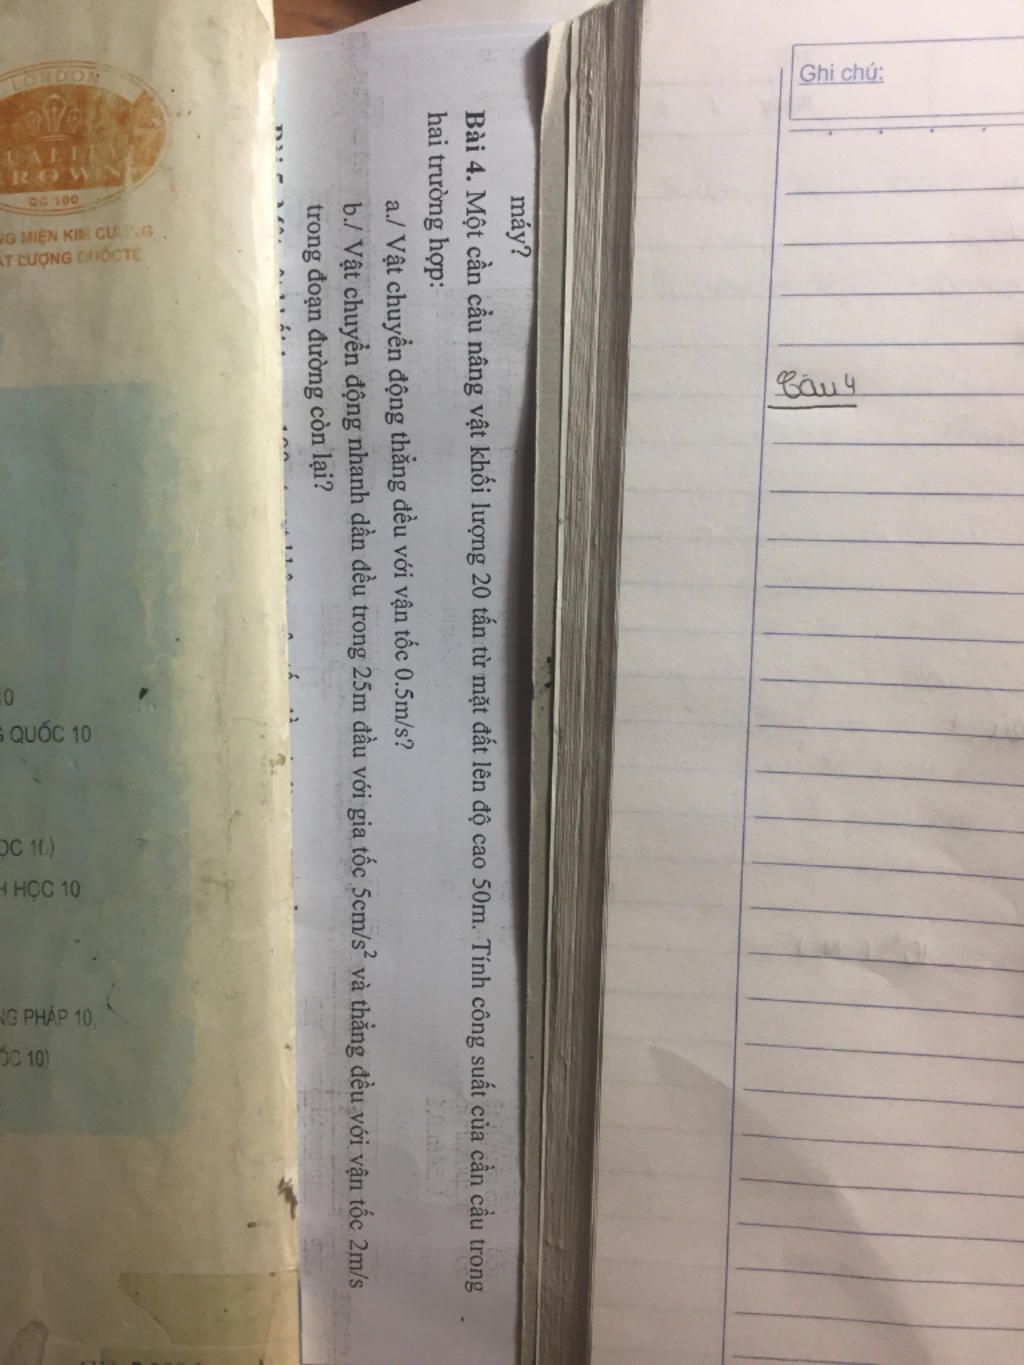 máy?
Bài 4. Một cần cẩu nâng vật khối lượng 20 tấn từ mặt đất lên độ cao 50m. Tính công suất của cần cẩu trong
hai trường hợp:
a./ Vật chuyển động thẳng đều với vận tốc 0.5m/s?
b./ Vật chuyển động nhanh dần đều trong 25m đầu với gia tốc 5cm/s² và thẳng đều với vận tốc 2m/s
trong đoạn đường còn lại?
Ghi chú:
Câu 4
LONDON
QG 100
MIỆN KIM CƯƠNG
LƯỢNG QUỐC TẾ
QUỐC 10
HỌC 10
PHÁP 10,
10)